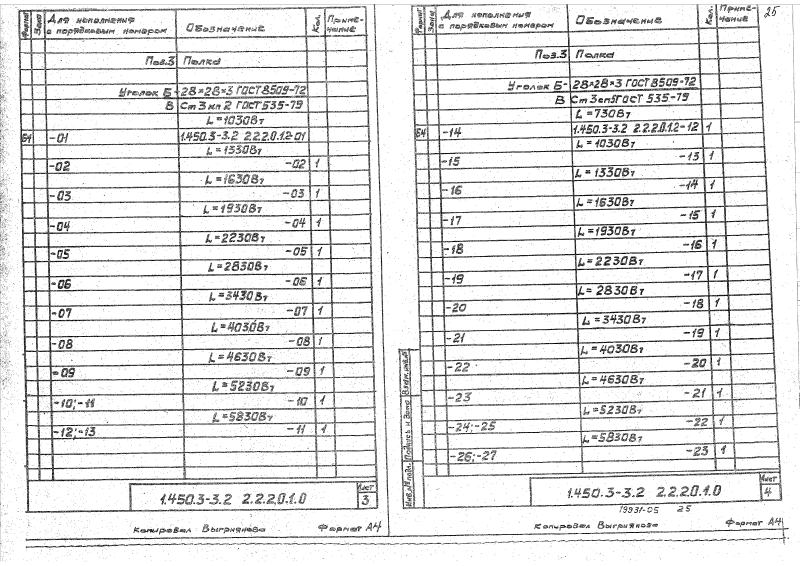 Формат Зона Для исполнения с порядковым номером Обозначение Кол. Приме-чание
Поз.3 Полка
Уголок Б-28×28×3 ГОСТ 8509-72
В Ст3кп2 ГОСТ 535-79
L=1030Вт
Б4 -01 1.450.3-3.2 2.2.2.0.1.2-01
L=1330Вт
-02 -02 1
L=1630Вт
-03 -03 1
L=1930Вт
-04 -04 1
L=2230Вт
-05 -05 1
L=2830Вт
-06 -06 1
L=3430Вт
-07 -07 1
L=4030Вт
-08 -08 1
L=4630Вт
-09 -09 1
L=5230Вт
-10;-11 -10 1
L=5830Вт
-12;-13 -11 1
1.450.3-3.2 2.2.2.0.1.0
Лист
3
Копировал Выгриянова Формат А4
25
Формат Зона Для исполнения с порядковым номером Обозначение Кол. Приме-чание
Поз.3 Полка
Уголок Б-28×28×3 ГОСТ 8509-72
В Ст3сп5 ГОСТ 535-79
L=730Вт
Б4 -14 1.450.3-3.2 2.2.2.0.1.2-12 1
L=1030Вт
-15 -13 1
L=1330Вт
-16 -14 1
L=1630Вт
-17 -15 1
L=1930Вт
-18 -16 1
L=2230Вт
-19 -17 1
L=2830Вт
-20 -18 1
L=3430Вт
-21 -19 1
L=4030Вт
-22 -20 1
L=4630Вт
-23 -21 1
L=5230Вт
-24;-25 -22 1
L=5830Вт
-26;-27 -23 1
Инв.№ подл. Подпись и дата Взам.инв.№
1.450.3-3.2 2.2.2.0.1.0
Лист
4
19931-05 25
Копировал Выгриянова Формат А4